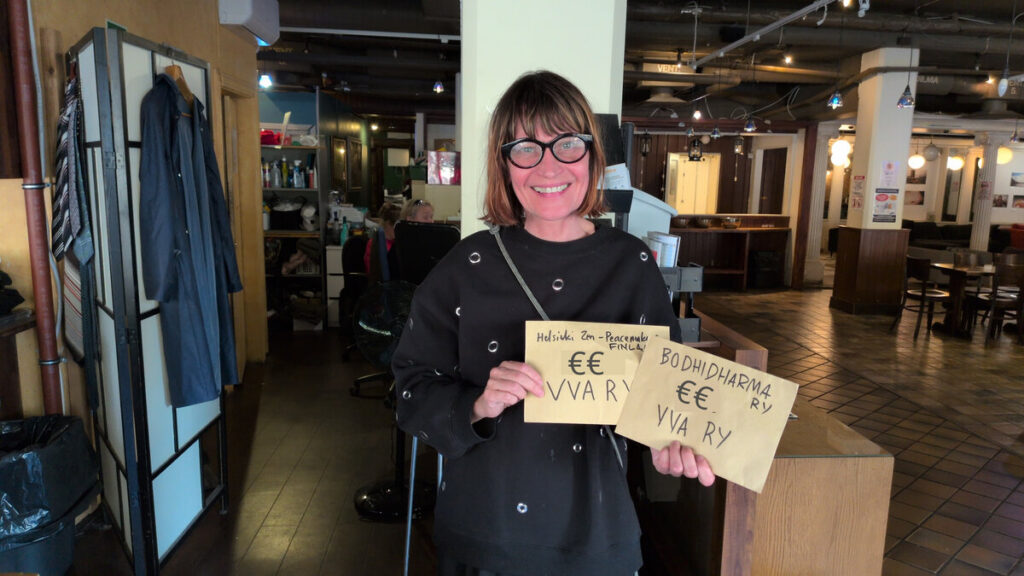 Helsinki Zm - Peacemaker
FINLA
€€
VVA RY
BODHIDHARMA
RY
€€
VVA RY